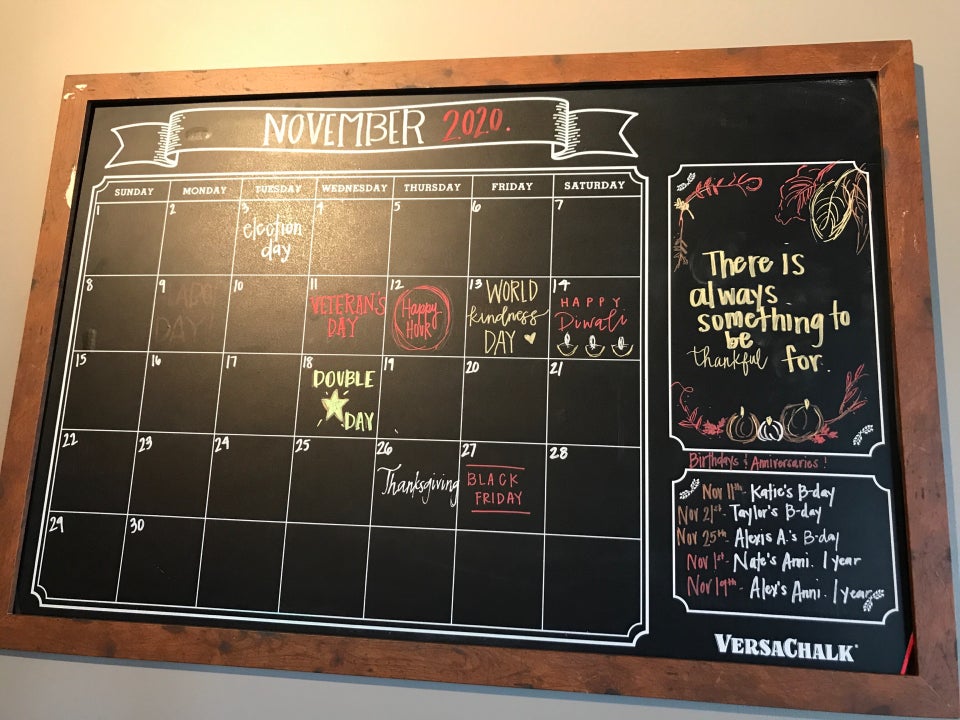 NOVEMBER 2020.
SUNDAY MONDAY TUESDAY WEDNESDAY THURSDAY FRIDAY SATURDAY
1 2 3 4 5 6 7
election
day
8 9 10 11 12 13 14
VETERAN'S
DAY
Happy
Hour
WORLD
kindness
DAY
HAPPY
Diwali
15 16 17 18 19 20 21
DOUBLE
DAY
22 23 24 25 26 27 28
Thanksgiving
BLACK
FRIDAY
29 30
There is
always
something to
be
thankful for.
Birthdays & Anniversaries!
Nov 11th - Katie's B-day
Nov 21st - Taylor's B-day
Nov 25th - Alexis A.'s B-day
Nov 1st - Nate's Anni. 1 year
Nov 19th - Alex's Anni. 1 year
VERSACHALK